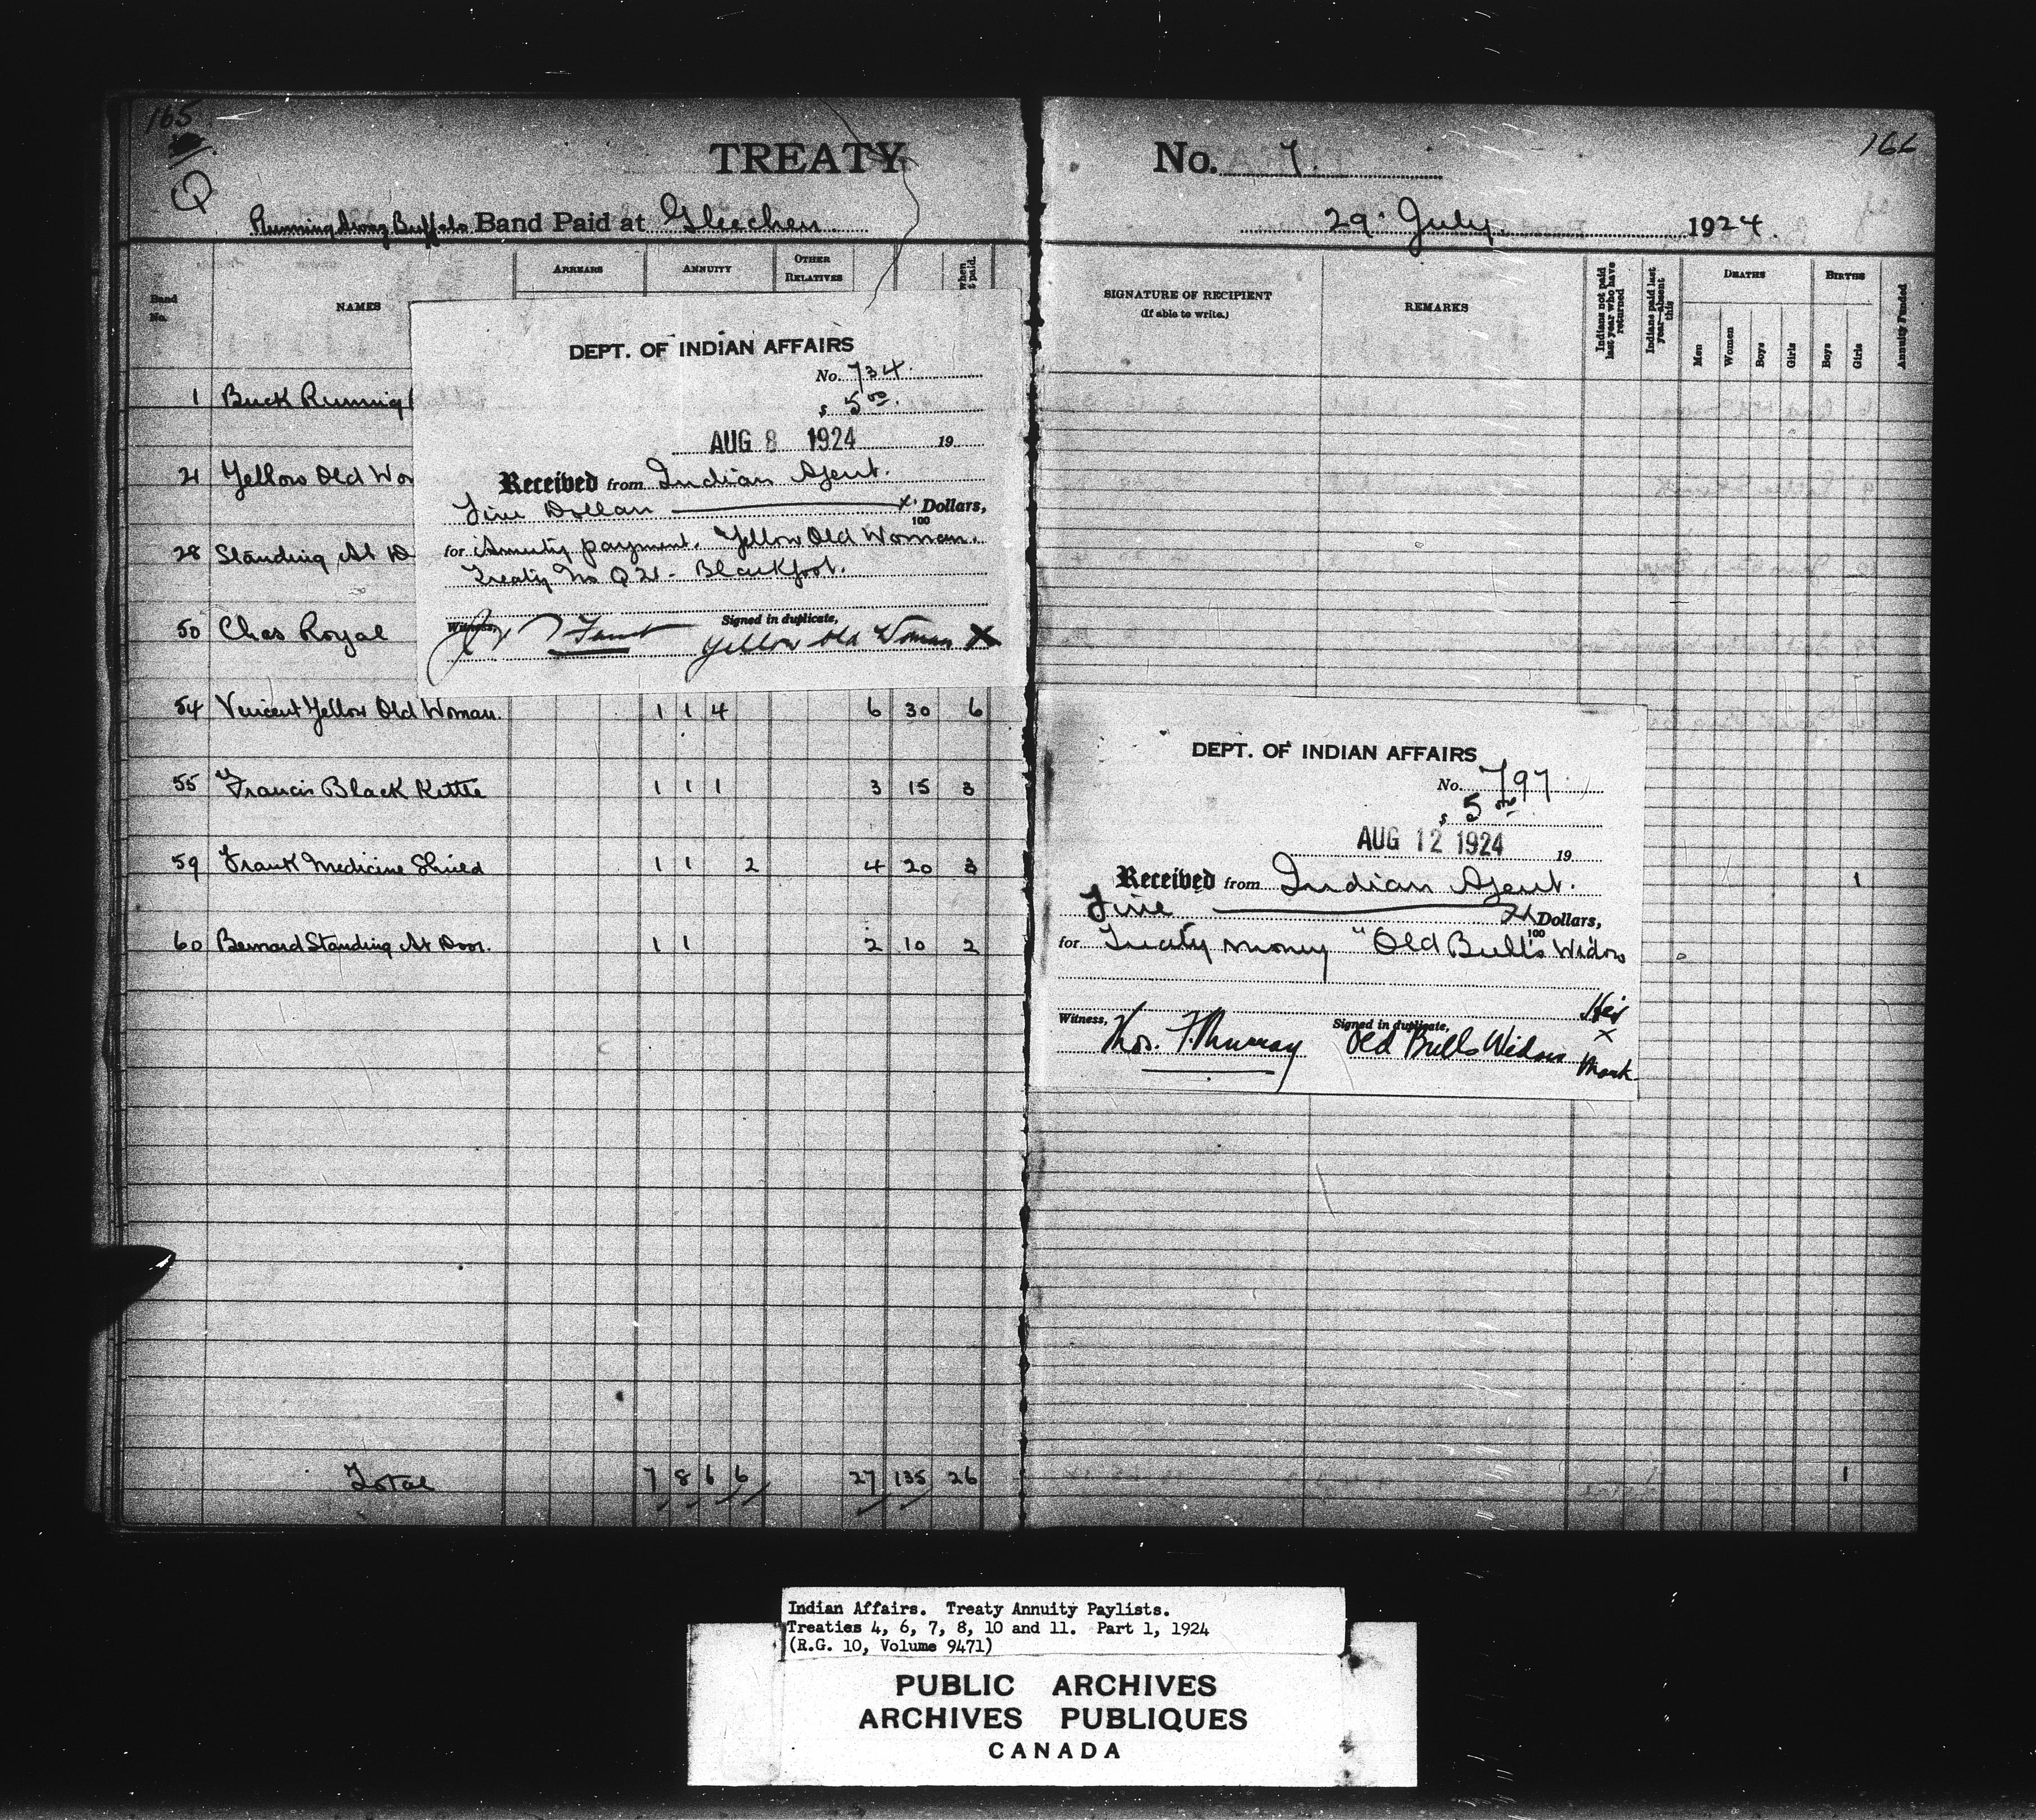 165
Q
TREATY
Running Away Buffalo Band Paid at Gleichen
Band No.
NAMES
ARREARS
ANNUITY
OTHER RELATIVES
1 Buck Running
21 Yellow Old Wo
28 Standing At D
50 Chas Royal
54 Vincent Yellow Old Woman. 1 1 4 6 30 6
55 Francis Black Kettle 1 1 1 3 15 3
59 Frank Medicine Shield 1 1 2 4 20 3
60 Bernard Standing At Door. 1 1 2 10 2
Total 7 8 6 6 27 135 26
DEPT. OF INDIAN AFFAIRS
No. 734.
$ 5.00
AUG 8 1924 19
Received from Indian Agent.
Five Dollars x Dollars,
100
for Annuity payment. Yellow Old Woman.
Treaty No Q 21 - Blackfoot.
Witness, Signed in duplicate,
Yellow Old Woman X
No. 7.
166
29 July 1924.
SIGNATURE OF RECIPIENT
(If able to write.)
REMARKS
Indians not paid last year who have returned
Indians paid last year—absent this
DEATHS
Men
Women
Boys
Girls
BIRTHS
Boys
Girls
Annuity Funded
1
1
DEPT. OF INDIAN AFFAIRS
No. 797
$ 5.00
AUG 12 1924 19
Received from Indian Agent.
Five Dollars,
100
for Treaty money "Old Bull's Widow
Witness, Signed in duplicate,
Thos. F. Murray Old Bulls Widow Her
x
Mark
Indian Affairs. Treaty Annuity Paylists.
Treaties 4, 6, 7, 8, 10 and 11. Part 1, 1924
(R.G. 10, Volume 9471)
PUBLIC ARCHIVES
ARCHIVES PUBLIQUES
CANADA